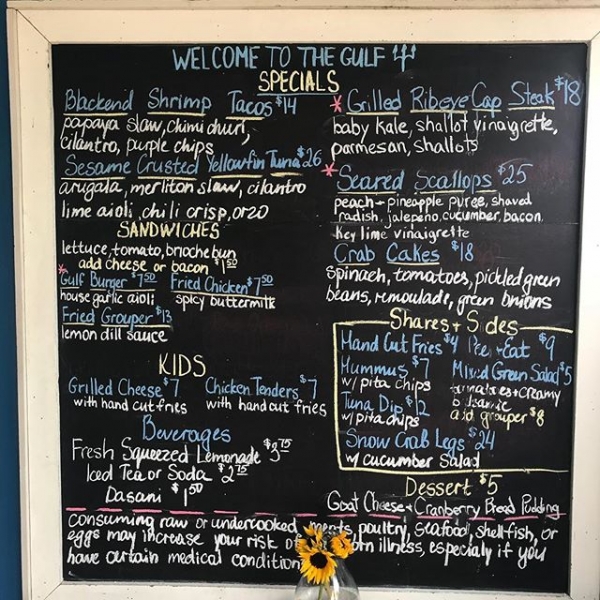 WELCOME TO THE GULF
SPECIALS
Blackend Shrimp Tacos $14
papaya slaw, chimi churi,
cilantro, purple chips
Sesame Crusted Yellowfin Tuna $26
arugala, merliton slaw, cilantro
lime aioli, chili crisp, orzo
SANDWICHES
lettuce, tomato, brioche bun
add cheese or bacon $1.50
* Gulf Burger $7.50
house garlic aioli
Fried Chicken $7.50
spicy buttermilk
Fried Grouper $13
lemon dill sauce
KIDS
Grilled Cheese $7
with hand cut fries
Chicken Tenders $7
with hand cut fries
Beverages
Fresh Squeezed Lemonade $3.75
Iced Tea or Soda $2.75
Dasani $1.50
* Grilled Ribeye Cap Steak $18
baby kale, shallot vinaigrette,
parmesan, shallots
* Seared Scallops $25
peach + pineapple puree, shaved
radish, jalepeno, cucumber, bacon,
key lime vinaigrette
Crab Cakes $18
spinach, tomatoes, pickled green
beans, remoulade, green onions
Shares + Sides
Hand Cut Fries $4
Hummus $7
w/ pita chips
Tuna Dip $12
w/ pita chips
Snow Crab Legs $24
w/ cucumber salad
Eat $9
Mixed Green Salad $5
tomatoes + creamy
balsamic
add grouper $8
Dessert $5
Goat Cheese + Cranberry Bread Pudding
Consuming raw or undercooked meats, poultry, seafood, shellfish, or
eggs may increase your risk of illness, especialy if you
have certain medical condition